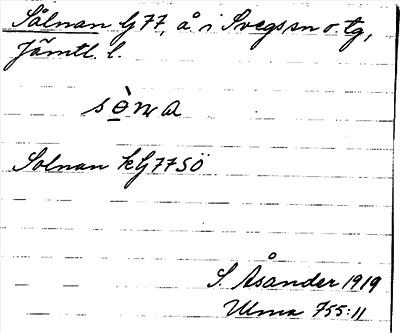 Sålnan bJ77, å i Svegs sn o. tg,
Jämtl. l.
Solnan kbJ77SÖ
S. Åsander 1919
Ulma 755:11